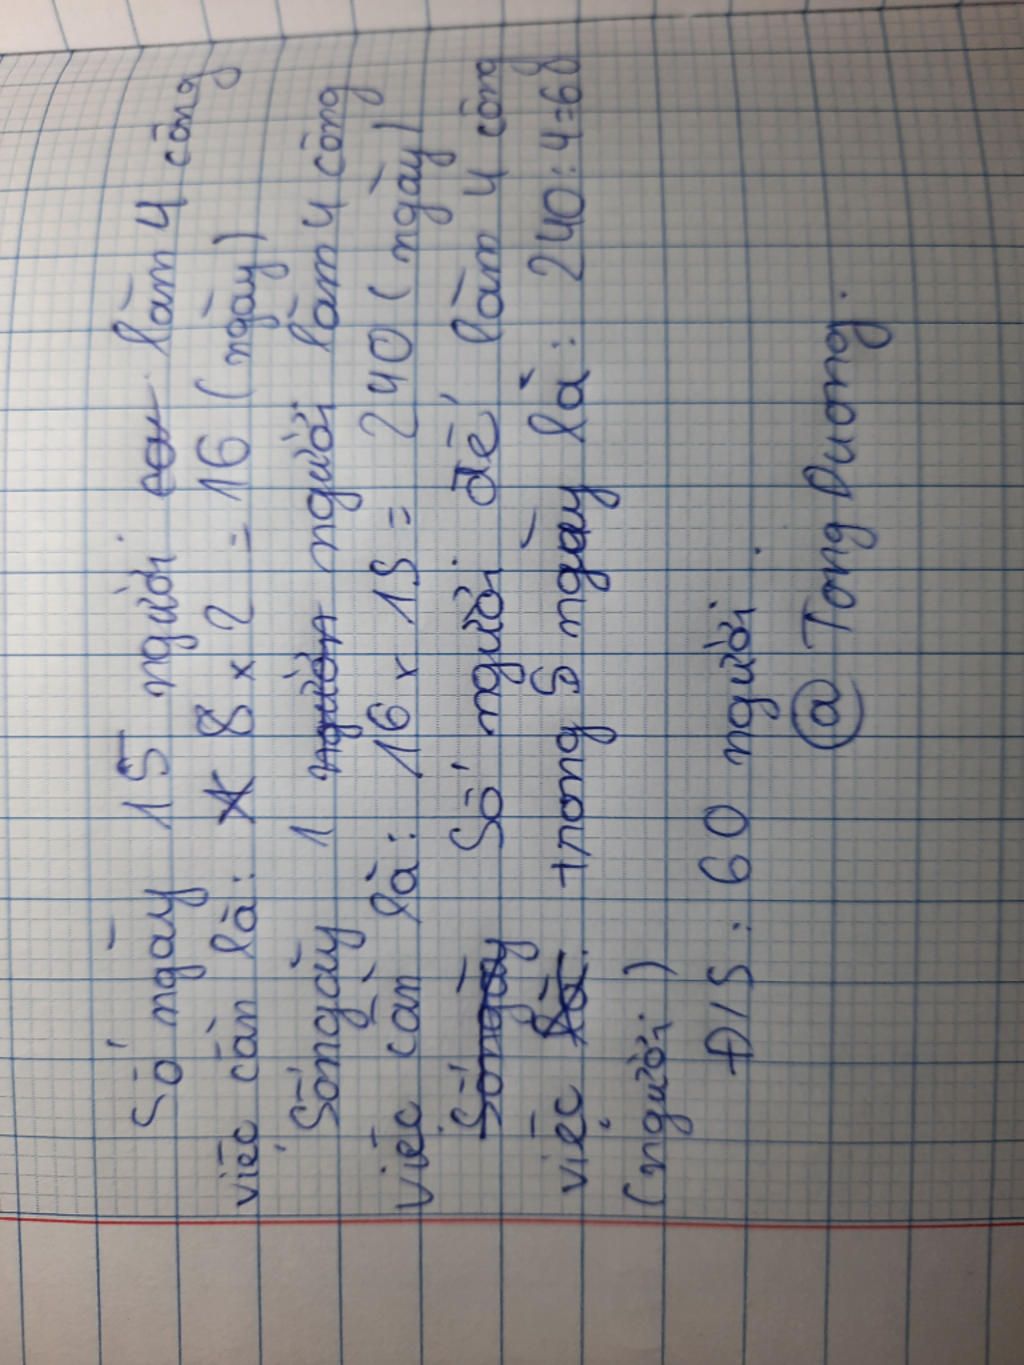 Số ngày 15 người làm 4 công
việc cần là: 8 x 2 = 16 (ngày)
Số ngày 1 người làm 4 công
việc cần là: 16 x 15 = 240 (ngày)
Số người để làm 4 công
việc trong 5 ngày là: 240:4=60
(người)
Đ/S: 60 người.
@ Tong Duong.